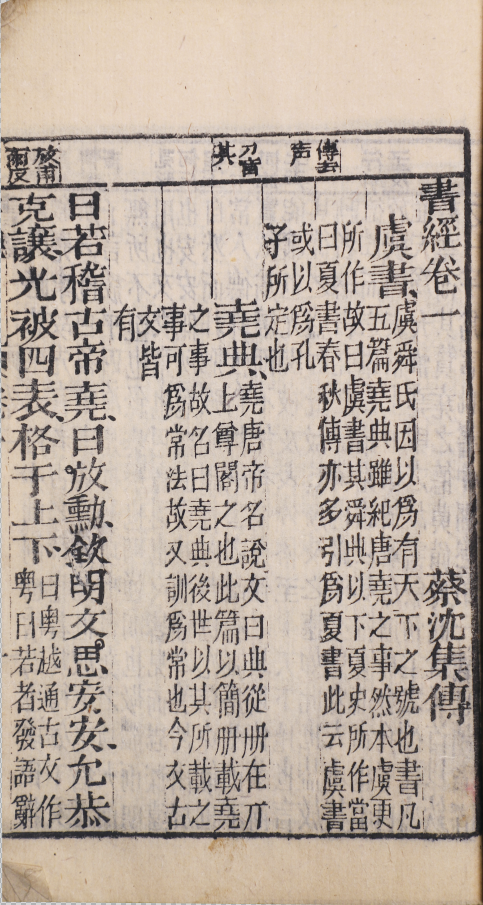 傳去
声
丌音
其
放甫
兩反
書經卷一 蔡沈集傳
虞書 虞舜氏因以爲有天下之號也書凡
五篇堯典雖紀唐堯之事然本虞史
所作故曰虞書其舜典以下夏史所作當
曰夏書春秋傳亦多引爲夏書此云虞書
或以爲孔
子所定也
堯典 堯唐帝名說文曰典從册在丌
上尊閣之也此篇以簡册載堯
之事故名曰堯典後世以其所載之
事可爲常法故又訓爲常也今文古
文皆
有
曰若稽古帝堯曰放勳欽明文思安安允恭
克讓光被四表格于上下 曰粤越通古文作
粤曰若者發語辭